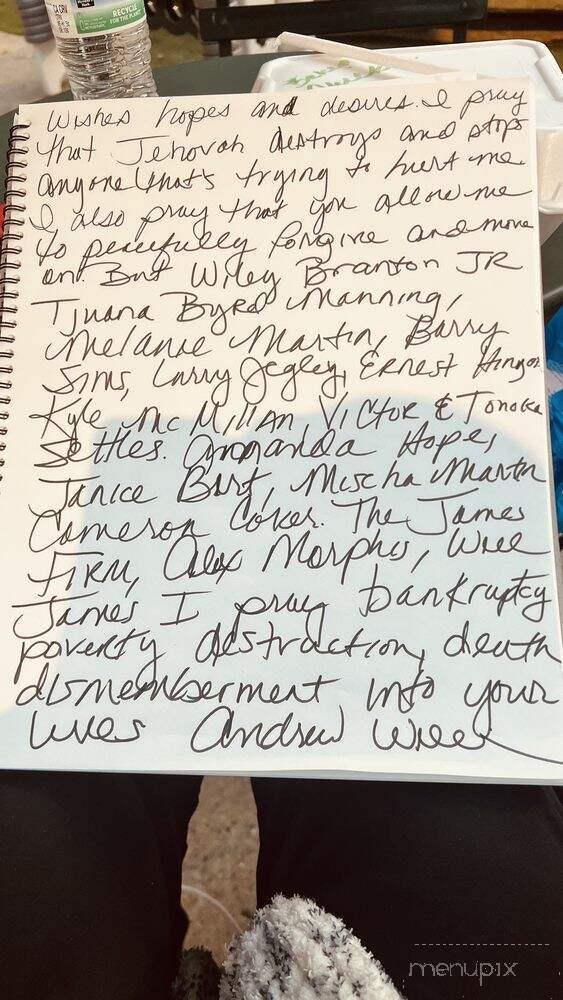 CA CRV
RECYCLE
FOR THE PLANET
Wishes hopes and desires. I pray
that Jehovah destroys and stops
anyone that's trying to hurt me.
I also pray that you allow me
to peacefully forgive and move
on. But Wiley Branton JR
Tjuana Byrd Manning,
Melanie Martin, Barry
Sims, Larry Jegley, Ernest
Kyle McMillan, Victor & Tonoka
Settles. Amanda Hope,
Janice Burt, Mischa Martin
Cameron Coker. The James
FIRM, Alex Morphis, Will
James I pray bankruptcy
poverty destruction, death
dismemberment, into your
lives Andrew
menupix